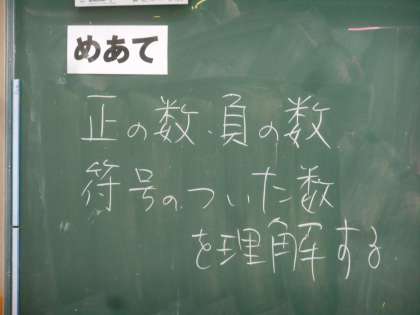 めあて
正の数・負の数
符号のついた数
を理解する